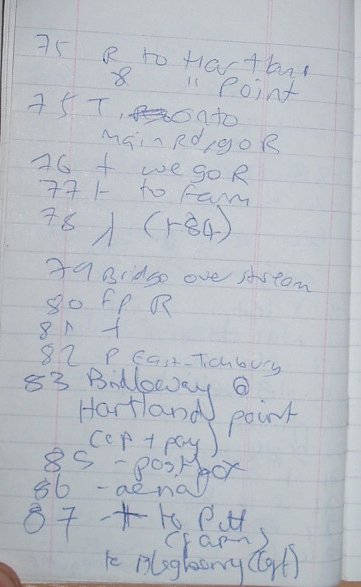 75 R to Hartland
& " Point
75 T, onto
main Rd, go R
76 + we go R
77 ⊢ to Farm
78 ⅄ (+84)
79 Bridge over stream
80 FP R
81 +
82 P East-Titchbury
83 Bridleway @
Hartland point
(cp + pay)
85 - post box
86 - aerial
87 + to Pitt
(farm)
to Blegberry (left)